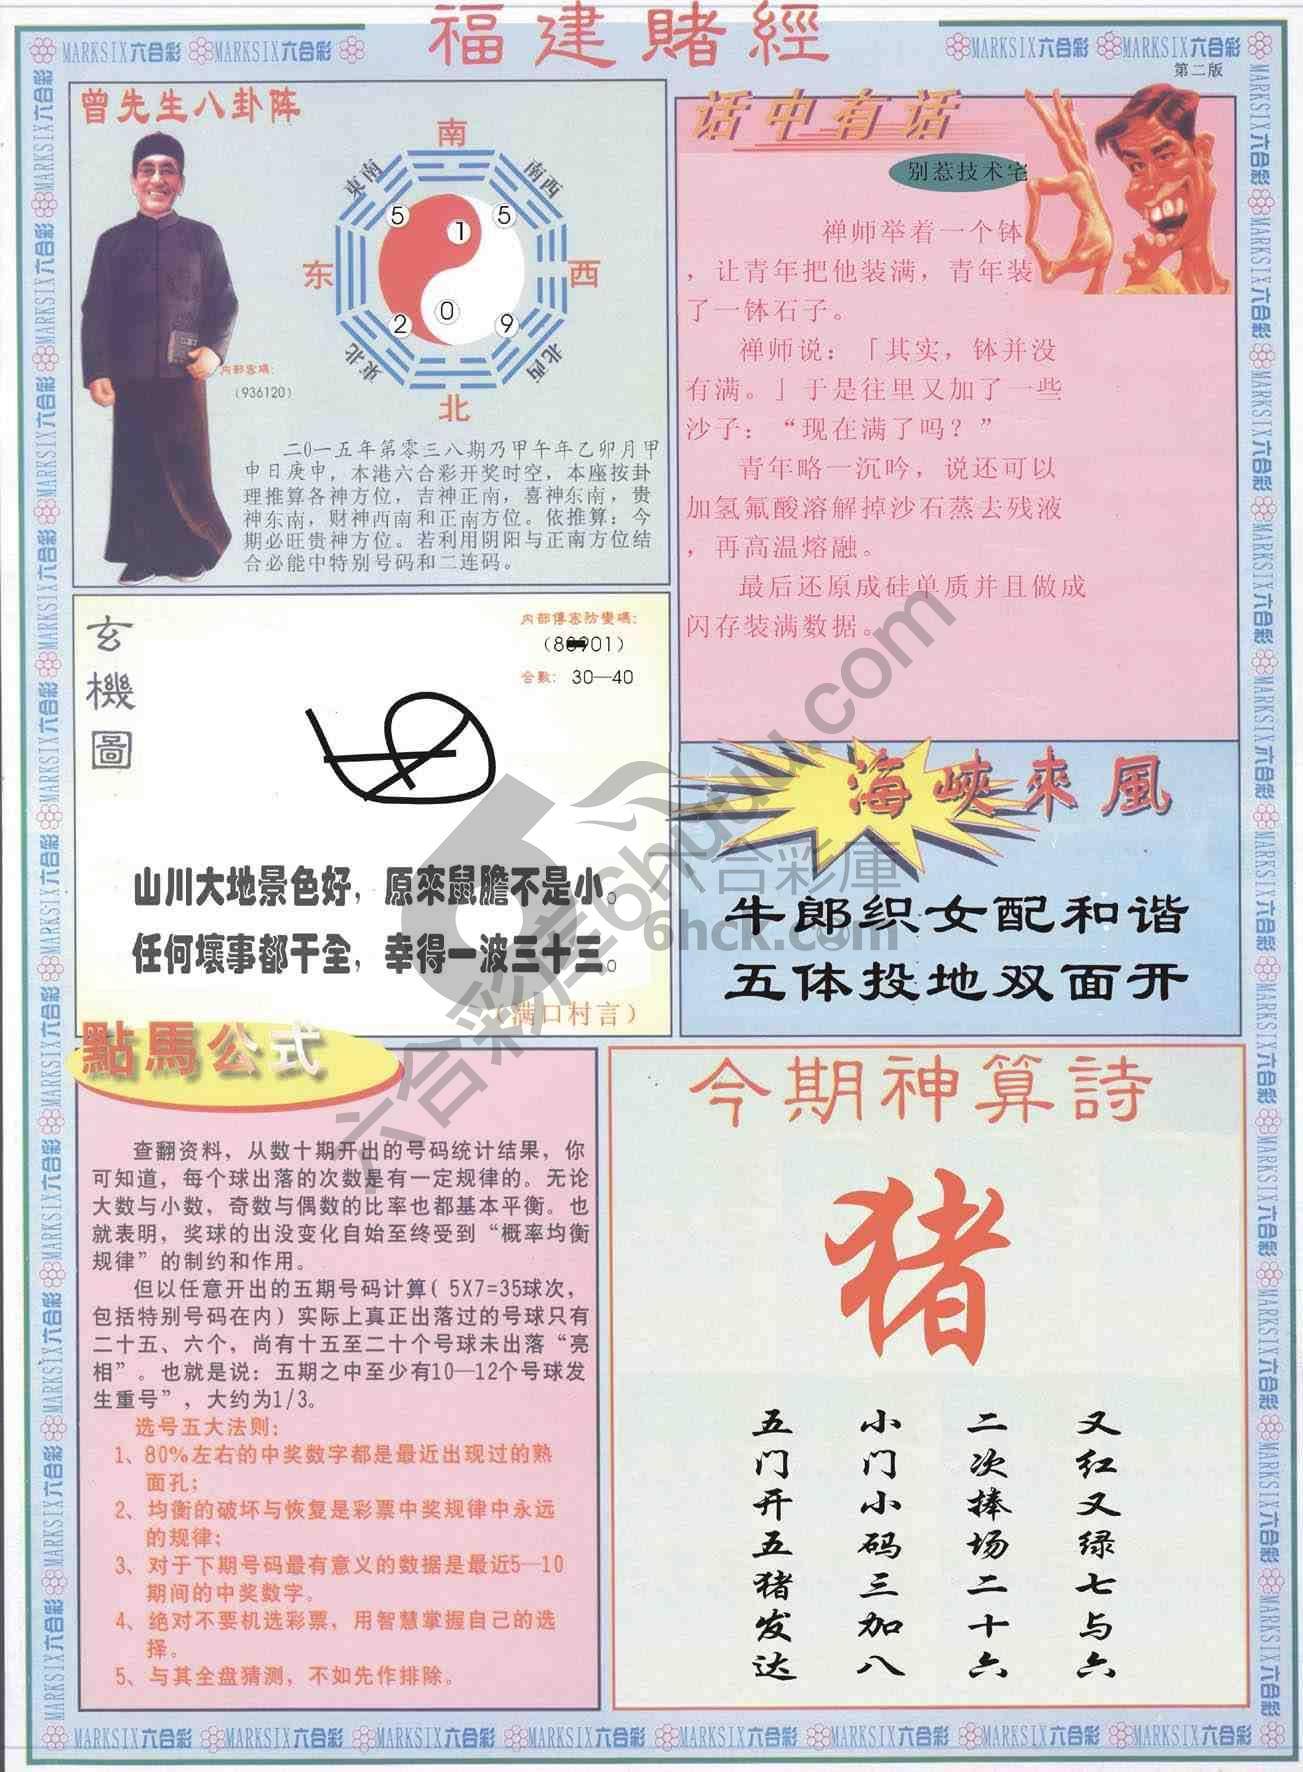 福建賭經
MARKSIX六合彩 MARKSIX六合彩
MARKSIX六合彩 MARKSIX六合彩
第二版
曾先生八卦阵
南
東南
南西
5
1
5
东
西
2
0
9
東北
北西
北
内部密碼：
(936120)
二0一五年第零三八期乃甲午年乙卯月甲
申日庚申，本港六合彩开奖时空，本座按卦
理推算各神方位，吉神正南，喜神东南，贵
神东南，财神西南和正南方位。依推算：今
期必旺贵神方位。若利用阴阳与正南方位结
合必能中特别号码和二连码。
话中有话
别惹技术宅
禅师举着一个钵
，让青年把他装满，青年装
了一钵石子。
禅师说：「其实，钵并没
有满。」于是往里又加了一些
沙子：“现在满了吗？”
青年略一沉吟，说还可以
加氢氟酸溶解掉沙石蒸去残液
，再高温熔融。
最后还原成硅单质并且做成
闪存装满数据。
玄機圖
内部傳密防變碼：
合數： 30—40
山川大地景色好，原來鼠膽不是小。
任何壞事都干全，幸得一波三十三。
（满口村言）
海峽來風
牛郎织女配和谐
五体投地双面开
點馬公式
查翻资料，从数十期开出的号码统计结果，你
可知道，每个球出落的次数是有一定规律的。无论
大数与小数，奇数与偶数的比率也都基本平衡。也
就表明，奖球的出没变化自始至终受到“概率均衡
规律”的制约和作用。
但以任意开出的五期号码计算( 5X7=35球次，
包括特别号码在内）实际上真正出落过的号球只有
二十五、六个，尚有十五至二十个号球未出落“亮
相”。也就是说：五期之中至少有10—12个号球发
生重号”，大约为1/3。
选号五大法则：
1、80%左右的中奖数字都是最近出现过的熟
面孔；
2、均衡的破坏与恢复是彩票中奖规律中永远
的规律；
3、对于下期号码最有意义的数据是最近5—10
期间的中奖数字。
4、绝对不要机选彩票，用智慧掌握自己的选
择。
5、与其全盘猜测，不如先作排除。
今期神算詩
猪
五门开五猪发达
小门小码三加八
二次捧场二十六
又红又绿七与六
六合彩库6hhuu.com
六合彩庫
6hck.com
MARKSIX六合彩 MARKSIX六合彩 MARKSIX六合彩 MARKSIX六合彩 MARKSIX六合彩 MARKSIX六合彩 MARKSIX六合彩 MARKSIX六合彩